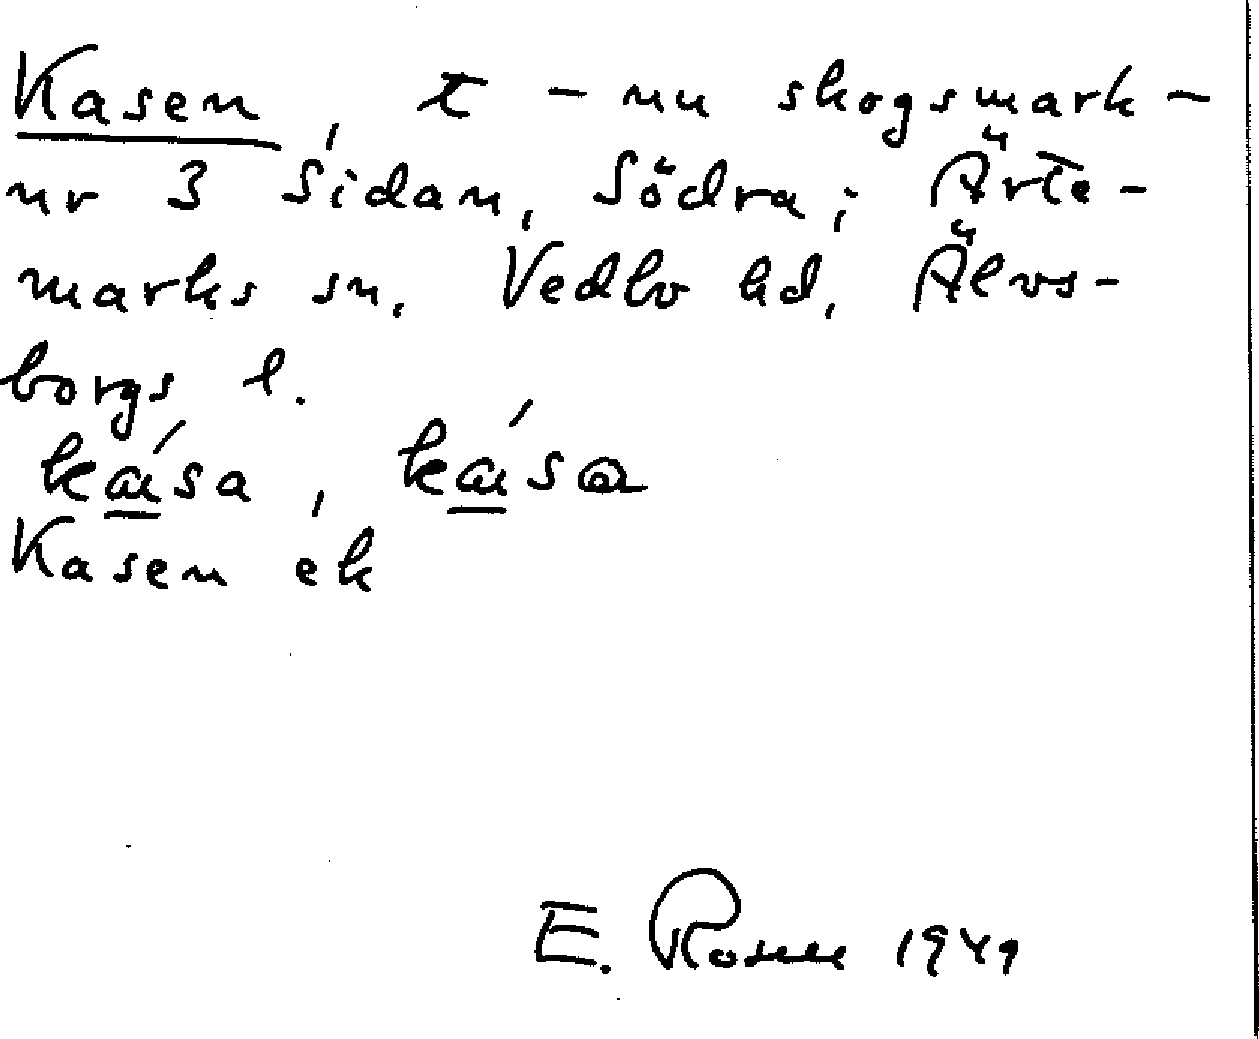 Kasen, t - nu skogsmark -
nr 3 Sidan, Södra; Ärte-
marks sn, Vedbo hd, Älvs-
borgs l.
ká̱sa, ká̱sɑ
Kasen ek
E. Rosell 1949